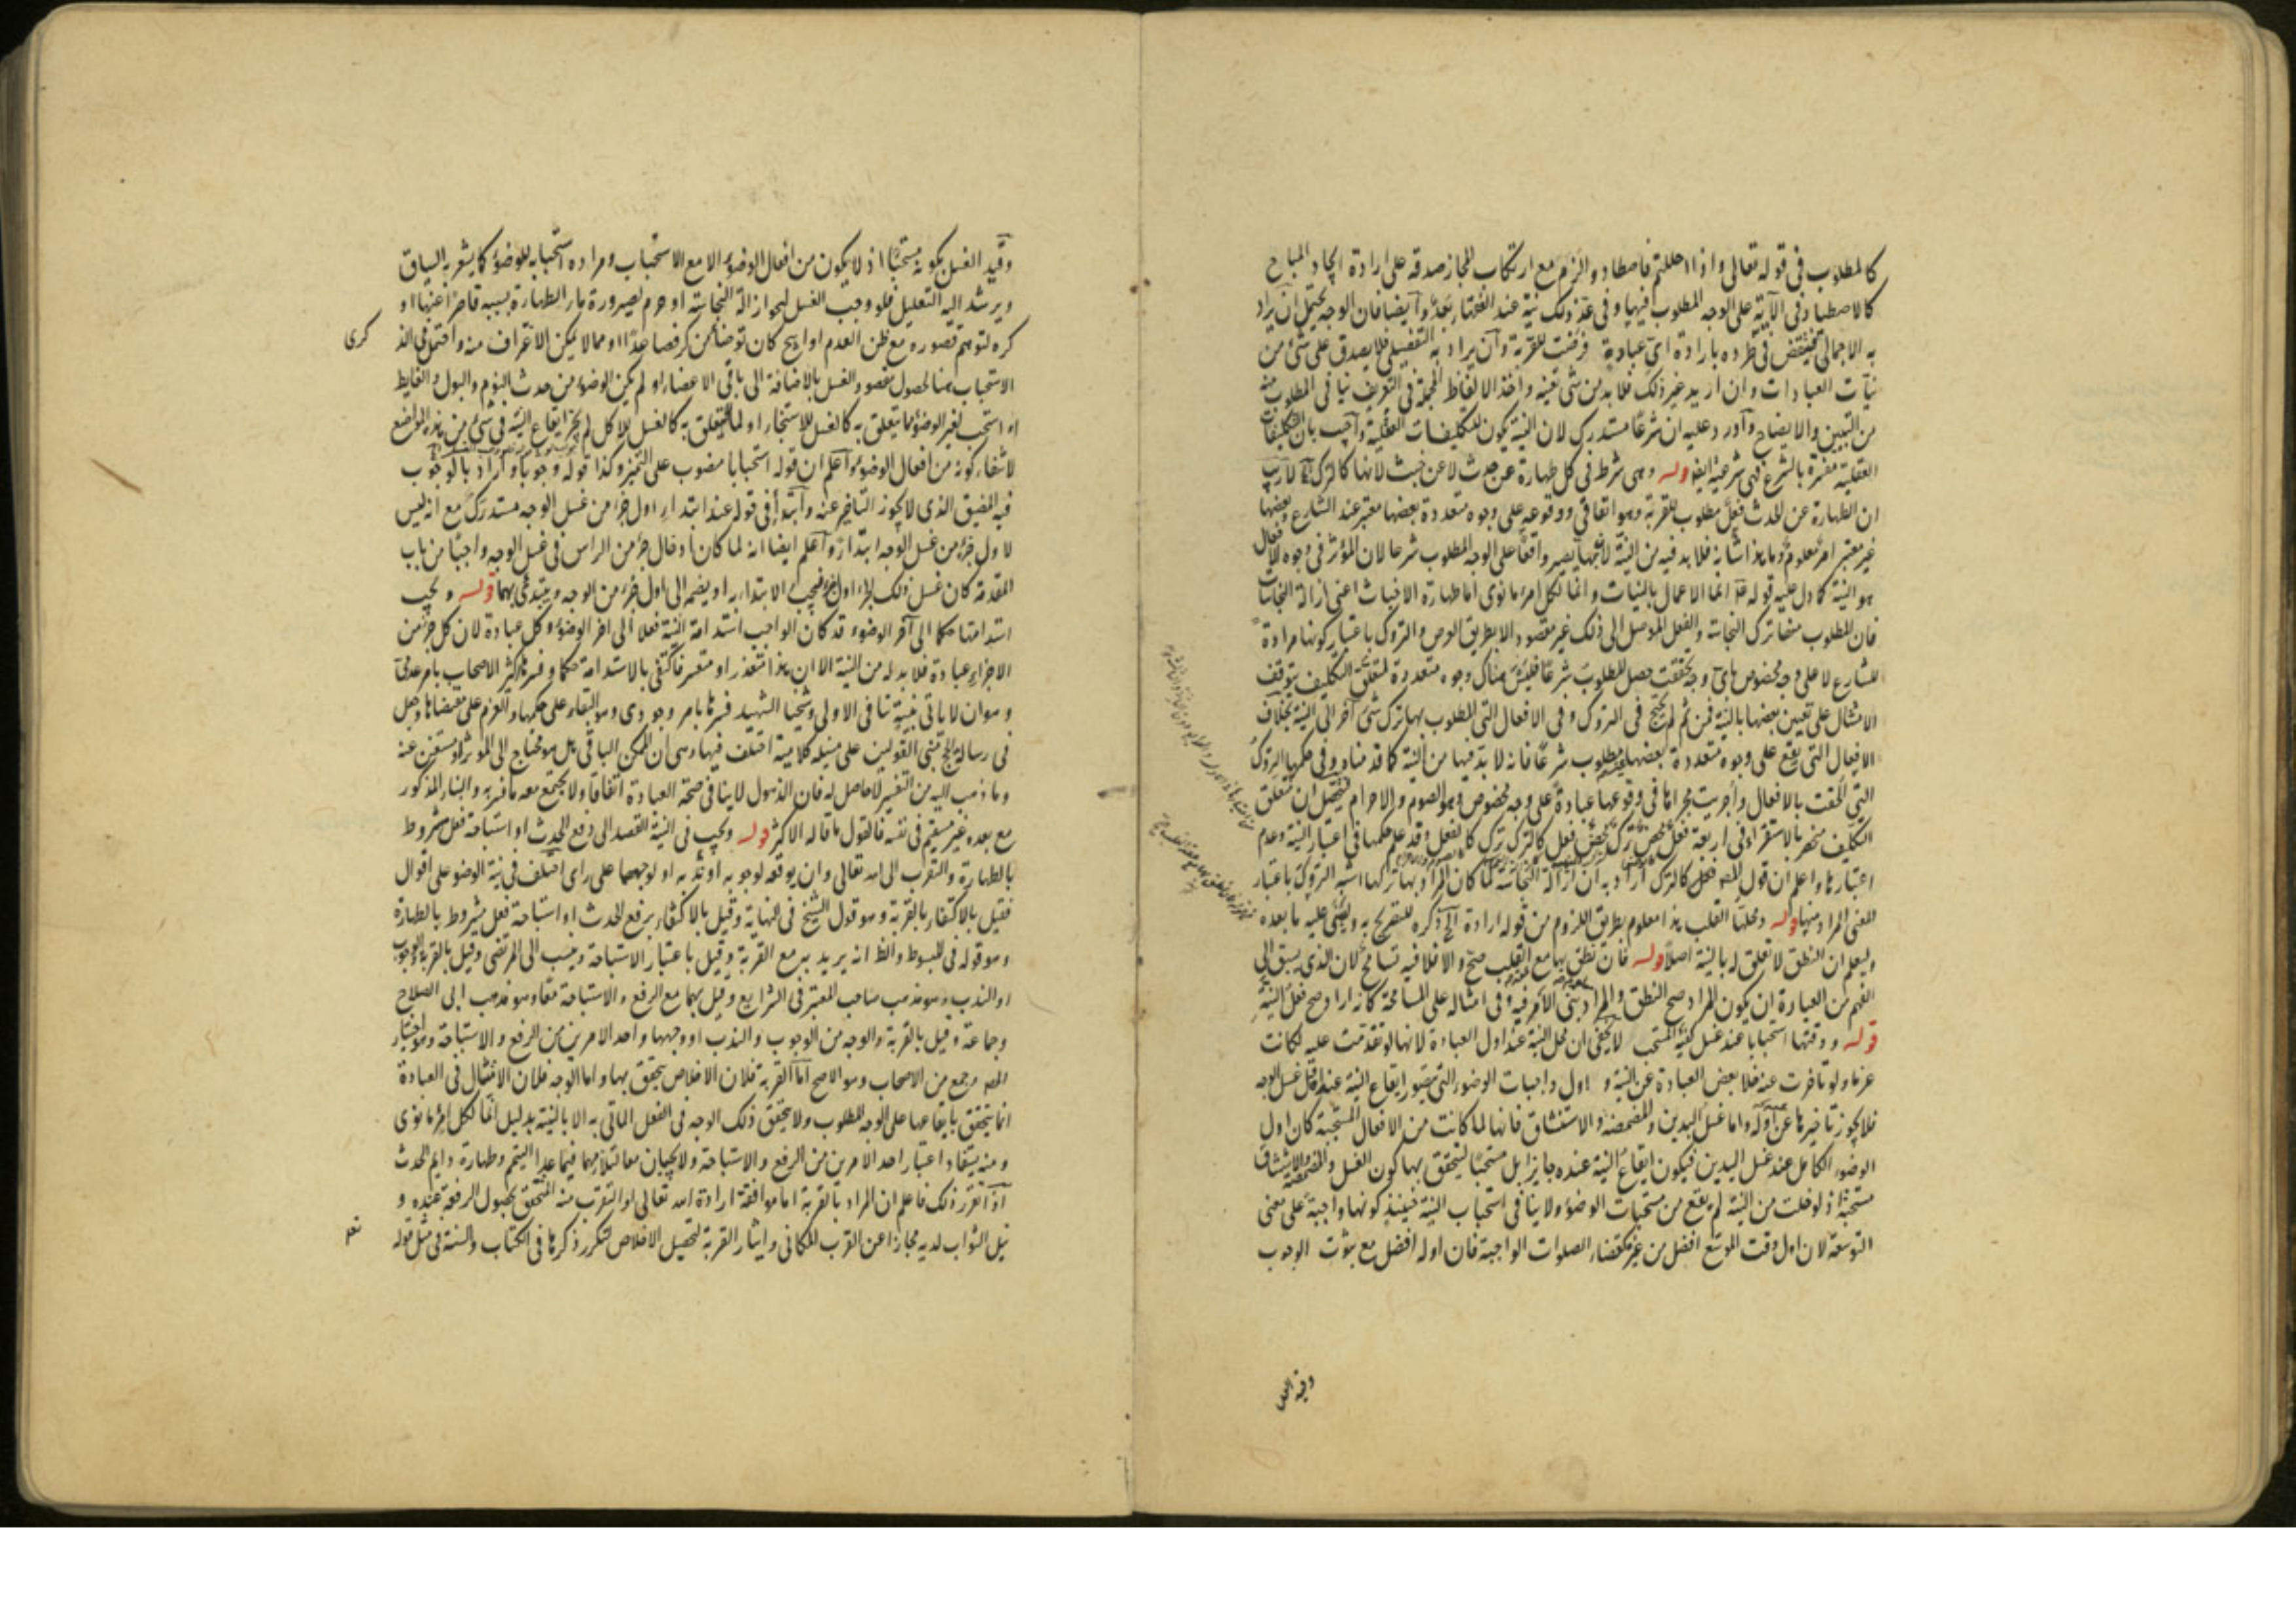 كالمطلوب في قوله تعالى واذا احللتم فاصطادوا لزم مع ارتكاب المجاز صدقه على ارادة ايجاد المباح
كالاصطياد في الآية على الوجه المطلوب فيها وفي عد ذلك نية عند الفقهاء بعد وايضا فان الوجه يحتمل ان يراد
به الاجمالي فينتقض في طرده بارادة اي عبادة فرضت للقربة وان يراد به التفصيلي فلا يصدق على شئ من
نيات العبادات وان اريد غير ذلك فلا بد من شئ يعينه واخذ الالفاظ المجملة في التعريف ينافي المطلوب منه
من التبيين والايضاح وآورد عليه ان شرعا مستدرك لان النية يكون للتكليفات العقلية واجيب بان التكليفات
العقلية مقررة بالشرع فهي شرعية ايضا قوله وهي شرط في كل طهارة عن حدث لا عن خبث لانها كالترك لا ريب
ان الطهارة عن الحدث فعل مطلوب للقربة وهو اتفاقي ووقوعه على وجوه متعددة بعضها معتبر عند الشارع وبعضها
غير معتبر امر معلوم وما هذا شانه فلا بد فيه من النية لانه بها يصير واقعا على الوجه المطلوب شرعا لان المؤثر في وجوه الافعال
هو النية كما دل عليه قوله انما الاعمال بالنيات وانما لكل امرء ما نوى اما طهارة الاخباث اعني ازالة النجاسات
فان المطلوب منها ترك النجاسة والفعل الموصل الى ذلك غير مقصود الا بطريق العرض والتروك باعتبار كونها مرادة
للشارع لا على وجه مخصوص باي وجه تحققت حصل المطلوب شرعا فليس هناك وجوه متعددة لمتعلق التكليف يتوقف
الامتثال على تعيين بعضها بالنية فمن ثم لم يحتج في التروك وفي الافعال التي المطلوب بها ترك شئ آخر الى النية بخلاف
الافعال التي يقع على وجوه متعددة بعضها مطلوب شرعا فانه لا بد فيها من النية كما قدمناه وفي حكمها التروك
التي الحقت بالافعال واجريت مجراها في وقوعها عبادة على وجه مخصوص وهو الصوم والاحرام فتحصل ان متعلق
التكليف منحصر بالاستقراء في اربعة فعل محض ترك محض فعل كالترك ترك كالفعل وقد علم حكمها في اعتبار النية وعدم
اعتبارها واعلم ان قول المصـ فعل كالترك اراد به ان ازالة النجاسة لما كان المراد بها تركها اشبه التروك باعتبار
المعنى المراد منها قوله ومحلها القلب هذا معلوم بطريق اللزوم من قوله ارادة الخ ذكره للتصريح به وليبنى عليه ما بعده
وليعلم ان النطق لا تعلق له بالنية اصلا قوله فان نطق بها مع القلب صح والا فلا فيه تسامح لان الذي يسبق الى
الفهم من العبارة ان يكون المراد صح النطق والمراد بنى الامر فيه وفي امثاله على المسامحة كانه اراد صح فعل النية
قوله ووقتها استحبابا عند غسل كفيه المستحب لا يخفى ان محل النية عند اول العبادة لانها لو تقدمت عليه لكانت
عزما ولو تاخرت عنه فلا بعض العبادة عن النية و اول واجبات الوضوء التي يتصور ايقاع النية عندها قبل غسل الوجه
فلا يجوز تاخيرها عن اوله واما غسل اليدين والمضمضة والاستنشاق فانها لما كانت من الافعال المستحبة كان اول
الوضوء الكامل عند غسل اليدين فيكون ايقاع النية عنده جايزا بل مستحبا ليتحقق بها كون الغسل والمضمضة والاستنشاق
مستحبة اذ لو خلت من النية لم يقع من مستحبات الوضوء ولا ينافي استحباب النية حينئذ كونها واجبة على معنى
التوسعة لان اول وقت الموسع افضل من غيره كقضاء الصلوات الواجبة فان اوله افضل مع ثبوت الوجوب
وقيد الغسل بكونه مستحبا اذ لا يكون من افعال الوضوء الا مع الاستحباب ومراده استحبابه للوضوء كما يشعر به السياق
ويرشد اليه التعليل فلو وجب الغسل لجواز ازالة النجاسة او حرم لصيرورة ماء الطهارة بسببه قاصرا عنها او
كره لتوهم قصوره مع ظن العدم او ابيح كان توضأ من كر فصاعدا او مما لا يمكن الاغتراف منه واحتمل في الذكرى
الاستحباب هنا لحصول مقصود الغسل بالاضافة الى باقي الاعضاء او لم يكن الوضوء من حدث النوم والبول والغايط
او استحب لغير الوضوء مما يتعلق به كالغسل للاستنجاء او لما لا يتعلق به كالغسل للاكل لم يجز ايقاع النية في شئ من هذه المواضع
لانتفاء كونه من افعال الوضوء واعلم ان قوله استحبابا منصوب على التميز وكذا قوله وجوبا واراد بالوجوب
فيه المضيق الذي لا يجوز التاخير عنه وابتداء في قوله عند ابتداء اول جزء من غسل الوجه مستدرك مع انه ليس
لاول جزء من غسل الوجه ابتداء واعلم ايضا انه لما كان ادخال جزء من الراس في غسل الوجه واجبا من باب
المقدمة كان غسل ذلك الجزء اول فيجب الابتداء به او يضمه الى اول جزء من الوجه ويبتدئ بهما قوله ويجب
استدامتها حكما الى آخر الوضوء قد كان الواجب استدامة النية فعلا الى اخر الوضوء وكل عبادة لان كل جزء من
الاجزاء عبادة فلا بد له من النية الا ان هذا متعذر او متعسر فاكتفى بالاستدامة حكما وفسرها اكثر الاصحاب بامر عدمي
وهو ان لا ياتي بنية تنافي الاولى وشيخنا الشهيد فسرها بامر وجودي وهو البقاء على حكمها والعزم على مقتضاها وجعل
في رسالة الحج مبنى القولين على مسئلة كلامية اختلف فيها وهي ان الممكن الباقي هل هو محتاج الى المؤثر او مستغن عنه
وما ذهب اليه من التفسير لا حاصل له فان الذهول لا ينافي صحة العبادة اتفاقا ولا يجتمع معه ما فسر به والبناء المذكور
مع بعده غير مستقيم في نفسه فالقول ما قاله الاكثر قوله ويجب في النية القصد الى رفع الحدث او استباحة فعل مشروط
بالطهارة والتقرب الى الله تعالى وان يوقعه لوجوبه او ندبه او لوجههما على راى اختلف في نية الوضوء على اقوال
فقيل بالاكتفاء بالقربة وهو قول الشيخ في النهاية وقيل بالاكتفاء برفع الحدث او استباحة فعل مشروط بالطهارة
وهو قوله في المبسوط والظ انه يريد به مع القربة وقيل باعتبار الاستباحة وينسب الى المرتضى وقيل بالقربة والوجوب
او الندب وهو مذهب صاحب المعتبر في الشرايع وقيل بهما مع الرفع والاستباحة معا وهو مذهب ابى الصلاح
وجماعة وقيل بالقربة والوجه من الوجوب والندب او وجههما واحد الامرين من الرفع والاستباحة وهو اختيار
المصـ وجمع من الاصحاب وهو الاصح اما القربة فلان الاخلاص يتحقق بها واما الوجه فلان الامتثال في العبادة
انما يتحقق بايقاعها على الوجه المطلوب ولا يتحقق ذلك الوجه في الفعل الماتي به الا بالنية بدليل انما لكل امرء ما نوى
ومنه يستفاد اعتبار احد الامرين من الرفع والاستباحة ولا يجبان معا لتلازمهما فيما عدا التيمم وطهارة دايم الحدث
اذا تقرر ذلك فاعلم ان المراد بالقربة اما موافقة ارادة الله تعالى او التقرب منه المتحقق بحصول الرفعة عنده و
نيل الثواب لديه مجازا عن القرب المكاني وايثار القربة لتحصيل الاخلاص لتكرر ذكرها في الكتاب والسنة في مثل قوله